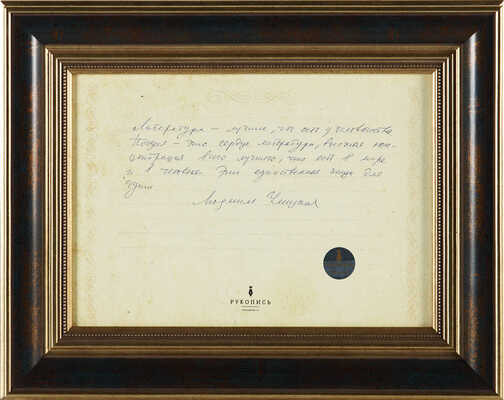 Литература – лучшее, что есть у человечества
Поэзия – это сердце литературы, высшая кон-
центрация всего лучшего, что есть в мире
и в человеке. Это единственная пища для
души
Людмила Улицкая
РУКОПИСЬ